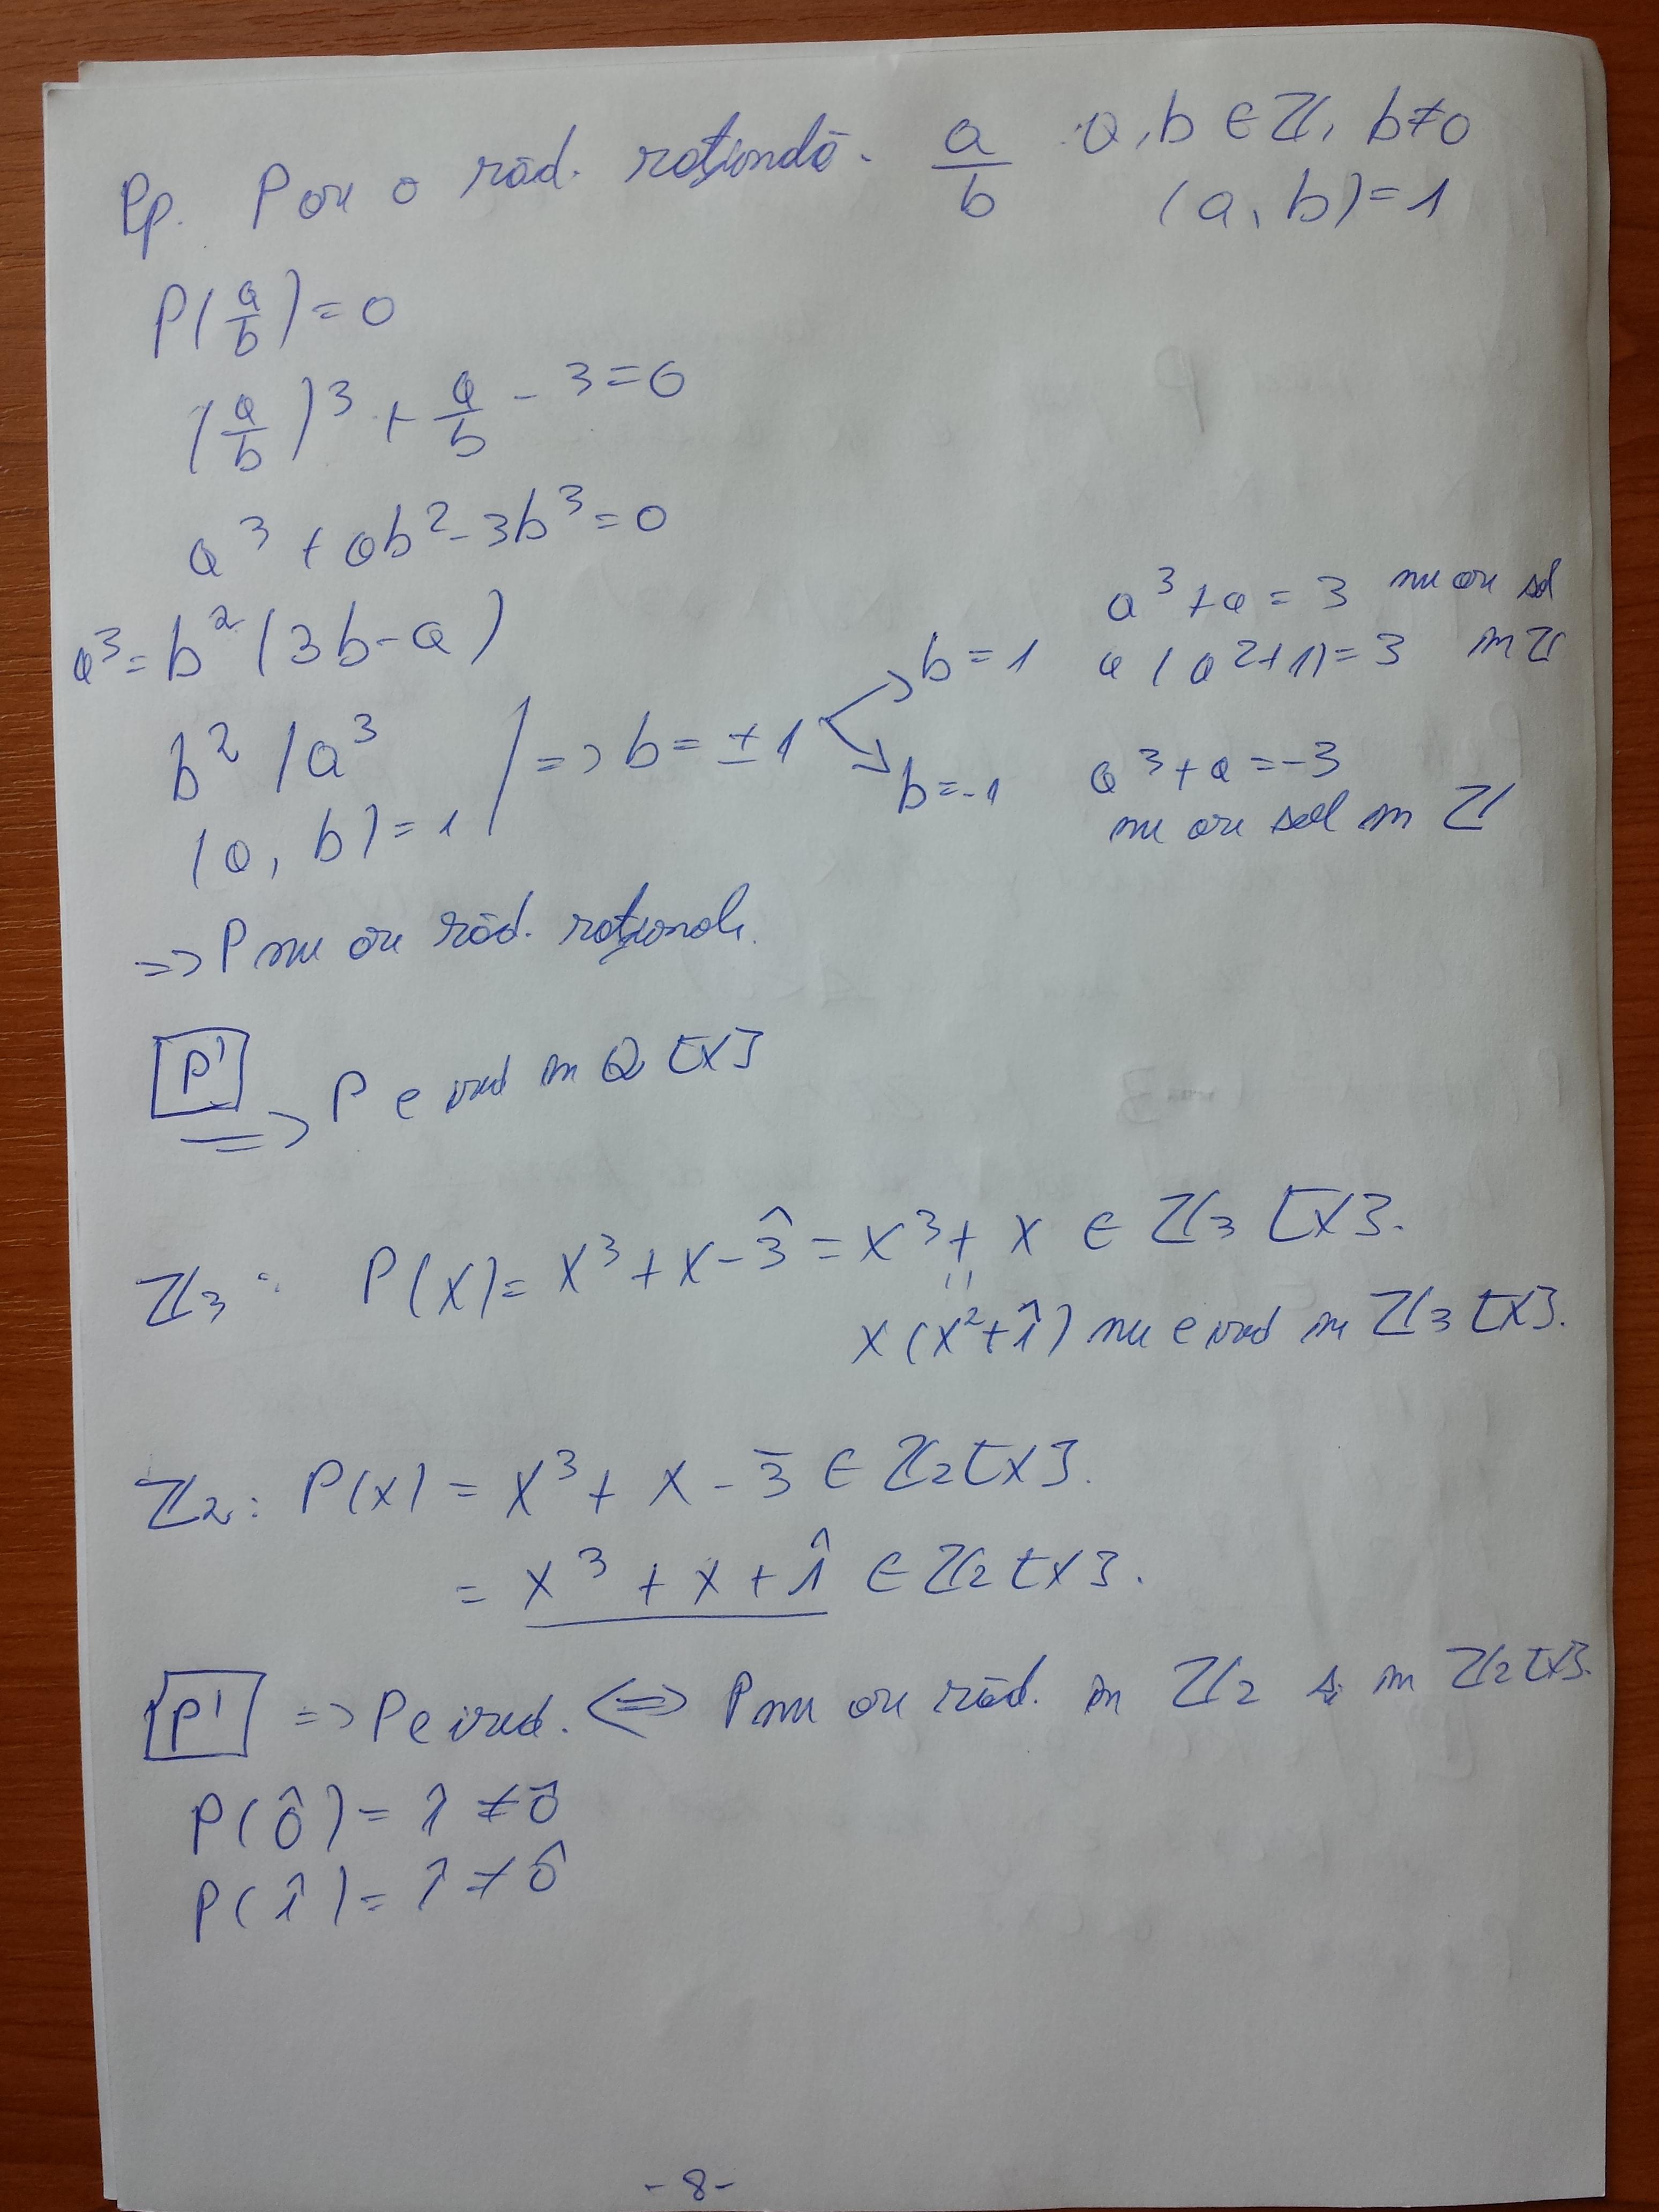 Pp. P are o răd. rațională. a/b a,b ∈ ℤ, b≠0
(a, b)=1
P(a/b)=0
(a/b)³ + a/b - 3=0
a³ + ab² - 3b³=0
a³= b²(3b-a)
b² | a³
(a, b)=1 | => b= ±1
b=1 a³+a = 3 nu are sol
a(a²+1)=3 în ℤ
b=-1 a³+a=-3
nu are sol în ℤ
=> P nu are răd. raționale.
P' => P e ired în Q[X]
ℤ₃: P(X)= X³+X-3̂ = X³+X ∈ ℤ₃[X].
"
X(X²+1̂) nu e ired în ℤ₃[X].
ℤ₂: P(X) = X³+X-3̄ ∈ ℤ₂[X].
= X³+X+1̂ ∈ ℤ₂[X].
P' => P e ired. <=> P nu are răd. în ℤ₂ în ℤ₂[X].
P(0̂)= 1̂ ≠ 0̂
P(1̂)= 1̂ ≠ 0̂
-8-